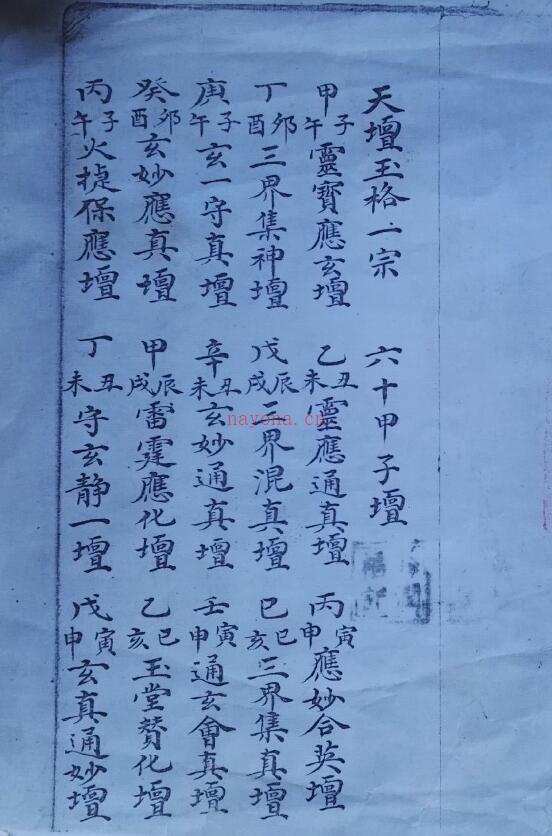 天壇玉格一宗 六十甲子壇
甲子午靈寶應玄壇 乙丑未靈應通真壇 丙寅申應妙合英壇
丁卯酉三界集神壇 戊辰戌三界混真壇 己巳亥三界集真壇
庚子午玄一守真壇 辛丑未玄妙通真壇 壬寅申通玄會真壇
癸卯酉玄妙應真壇 甲辰戌雷霆應化壇 乙巳亥玉堂贊化壇
丙子午火捷保應壇 丁丑未守玄靜一壇 戊寅申玄真通妙壇
nayona.cn